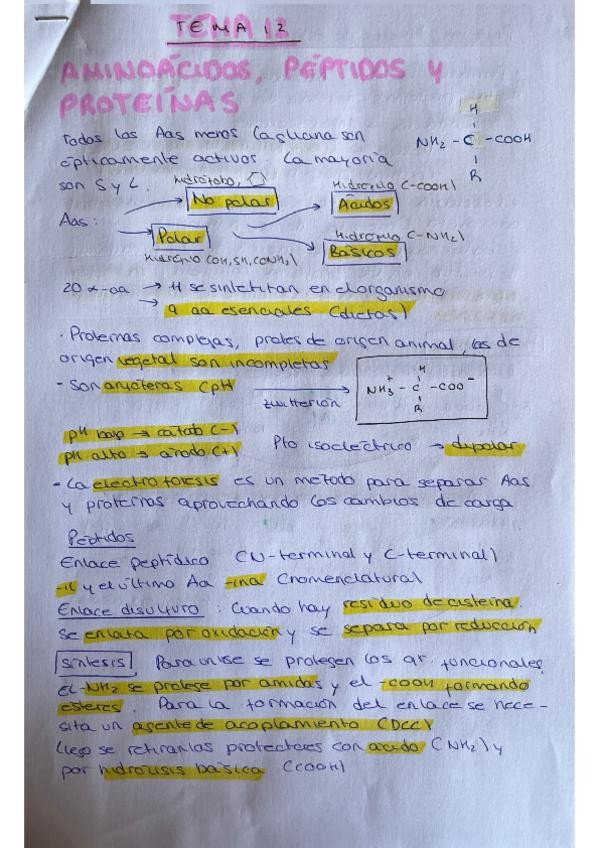 TEMA 12
AMINOÁCIDOS, PÉPTIDOS Y
PROTEÍNAS
Todos los Aas menos la glicina son
ópticamente activos. La mayoría
son S y L.
H
NH₂ - C - COOH
R
hidrófobo,
No polar
Hidrófilo (-COOH)
Ácidos
Aas:
Polar
Hidrófilo (-NH₂)
Básicos
Hidrófilo (OH, SH, CONH₂)
20 α-aa → 11 se sintetizan en el organismo
→ 9 aa esenciales (dietas)
· Proteínas complejas, protes de origen animal, las de
origen vegetal son incompletas
- Son anfóteras (pH)
zwitterión
H
NH₃⁺ - C - COO⁻
R
pH bajo → cátodo (-)
pH alto → ánodo (+)
Pto isoeléctrico → dipolar
- La electroforesis es un método para separar Aas
y proteínas aprovechando los cambios de carga
Péptidos
Enlace peptídico (N-terminal y C-terminal)
-il y el último Aa -ina (nomenclatura)
Enlace disulfuro: Cuando hay residuo de cisteína.
Se enlaza por oxidación y se separa por reducción
Síntesis Para unirse se protegen los gr. funcionales,
el -NH₂ se protege por amidas y el -COOH formando
ésteres. Para la formación del enlace se nece-
sita un agente de acoplamiento (DCC)
Luego se retiran los protectores con ácido (NH₂) y
por hidrólisis básica (COOH)